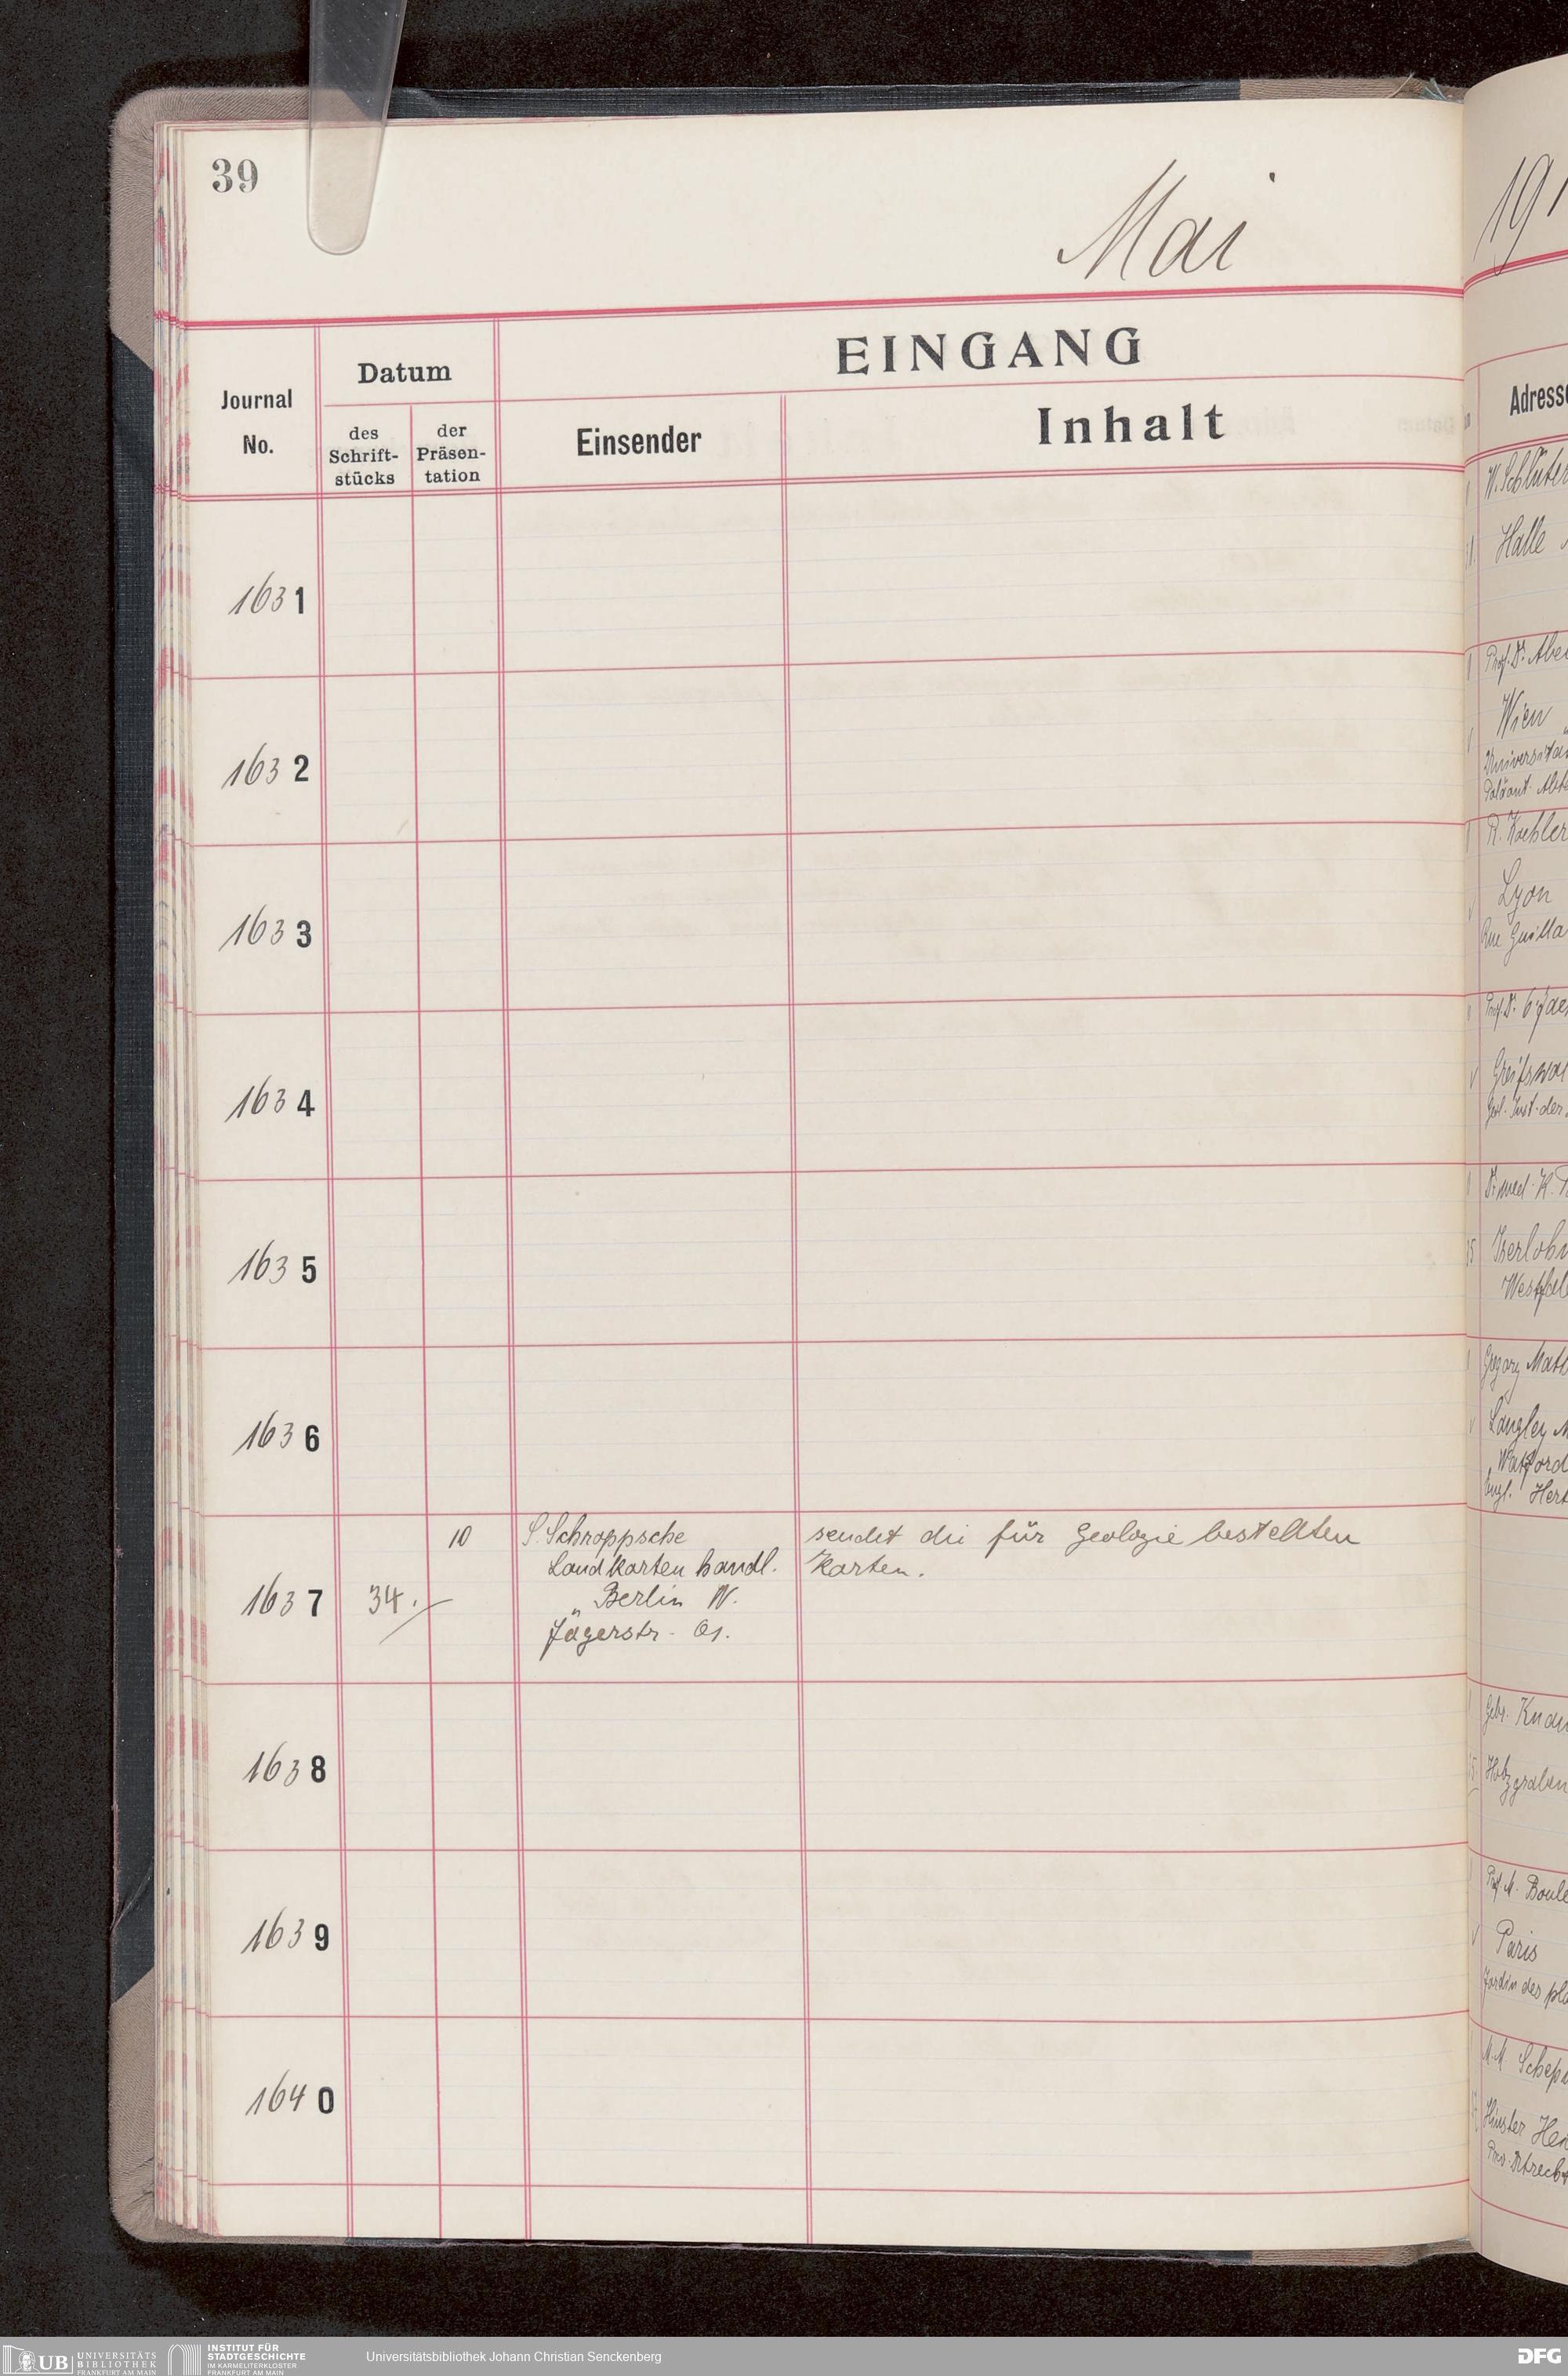 39
Mai
191
EINGANG
Journal
No.
Datum
des
Schrift-
stücks
der
Präsen-
tation
Einsender
Inhalt
1631
1632
1633
1634
1635
1636
1637
34.
10
S. Schroppsche
Landkarten handl.
„ Berlin W.
Jägerstr. 61.
sendet die für Geologie bestellten
Karten.
1638
1639
1640
Adresse
W. Schlüter
Halle
Prof. Dr. Abe
Wien
Universitä
Paläont. Abt
R. Koehler
Lyon
Rue Guilla
Prof. Dr.
Greifswa
Geol. Inst. der
Dr. med. K.
Iserlohn
Westfal
Gregory Math
Langley M
Watford
Engl. Hert
Gebr. Knau
Holzgraben
Prof. M. Boule
Paris
Jardin des pla
M. M. Schep
Huister Hei
Prov. Utrecht
UB UNIVERSITÄTS
BIBLIOTHEK
FRANKFURT AM MAIN
INSTITUT FÜR
STADTGESCHICHTE
IM KARMELITERKLOSTER
FRANKFURT AM MAIN
Universitätsbibliothek Johann Christian Senckenberg
DFG